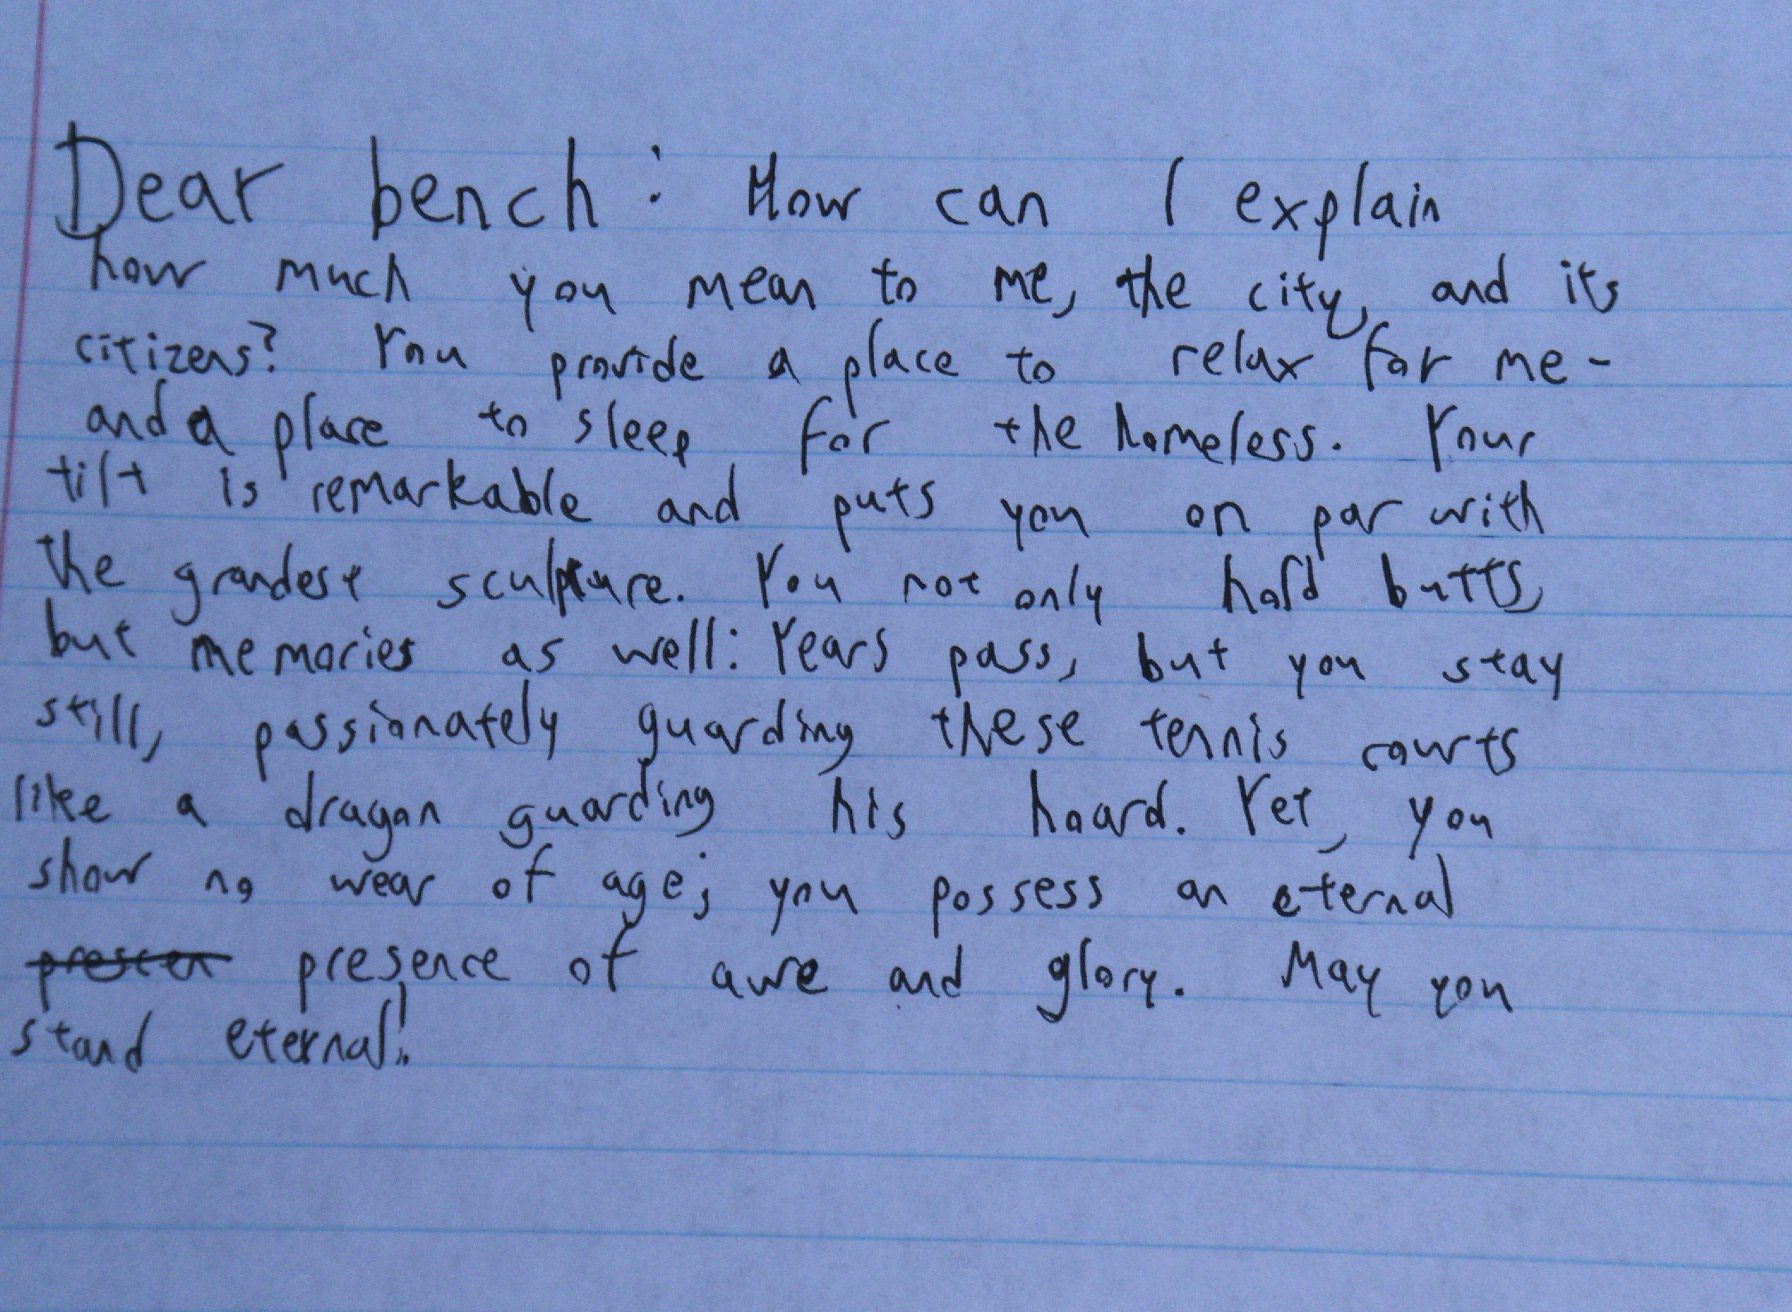 Dear bench: How can I explain
how much you mean to me, the city, and its
citizens? You provide a place to relax for me-
and a place to sleep for the homeless. Your
tilt is remarkable and puts you on par with
the grandest sculpture. You not only hold butts,
but memories as well: Years pass, but you stay
still, passionately guarding these tennis courts
like a dragon guarding his hoard. Yet, you
show no wear of age; you possess an eternal
presence of awe and glory. May you
stand eternal!